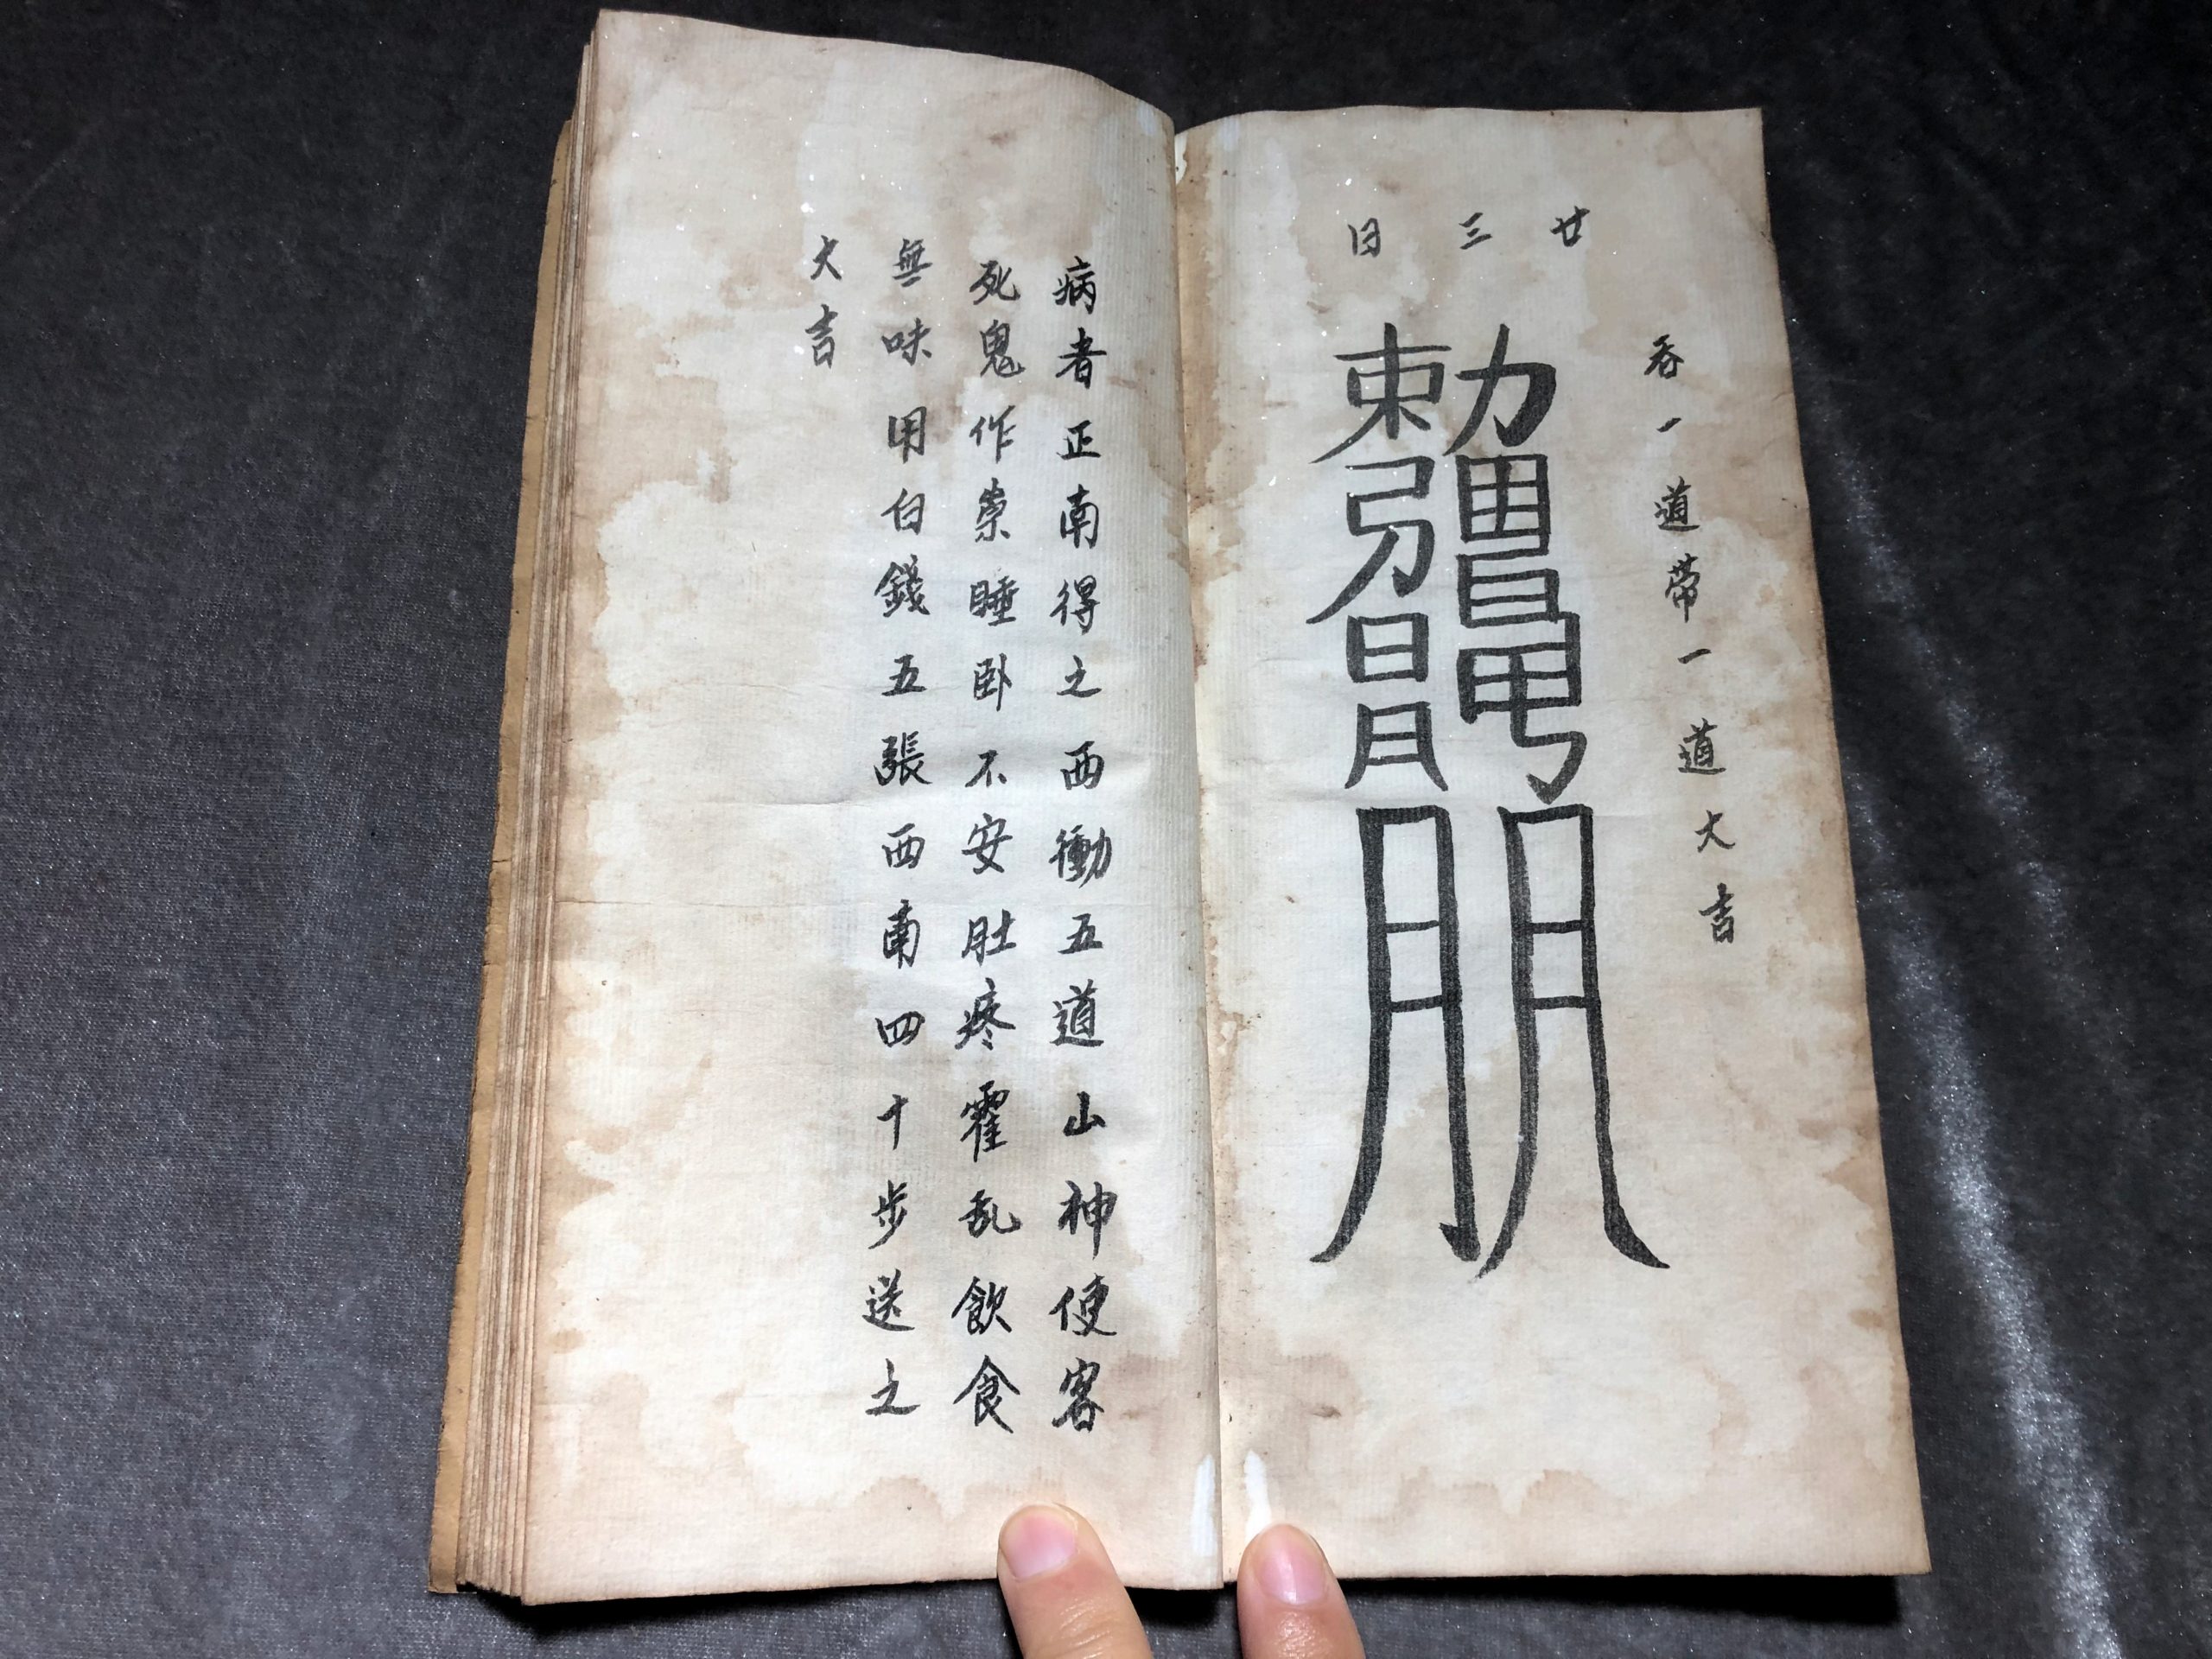 廿三日
吞一道帶一道大吉
勅
病者正南得之西衝五道山神使客
死鬼作祟睡卧不安肚疼霍乱飲食
無味用白錢五張西南四十步送之
大吉